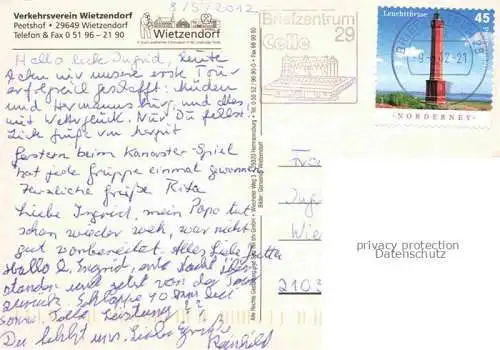 Verkehrsverein Wietzendorf
Peetshof • 29649 Wietzendorf
Telefon & Fax 0 51 96 – 21 90
Wietzendorf
8/5/2012
Briefzentrum
29
Celle
Leuchttürme
45
NORDERNEY
Hallo liebe Ingrid, heute
haben wir unsere erste Tour
erfolgreich geschafft: Müden
und Hermannsburg, und alles
mit Nur Du fehlst!
Liebe Grüße von
Gestern beim Kanaster-Spiel
hat jede Gruppe einmal gewonnen
Herzliche Grüße Rita
Liebe Ingrid, mein Popo tut
schon wieder weh, war nicht
gut vorbereitet. Alles Liebe Jutta
Hallo l. Ingrid, erste Nacht über-
standen und jetzt von der Tour
zurück. 40 km bei
Sonne Tolle Leistung ??
Du fehlst uns. Liebe Grüße
Reinhild
Frau
Ing
Wie
2103
privacy protection
Datenschutz